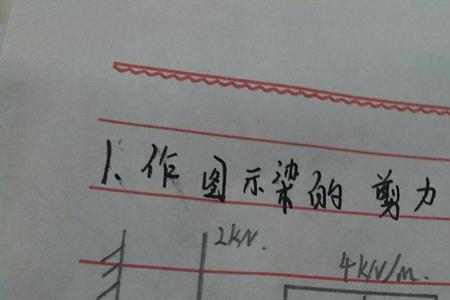 1、作图示梁的剪力
2kN.
4kN/m.